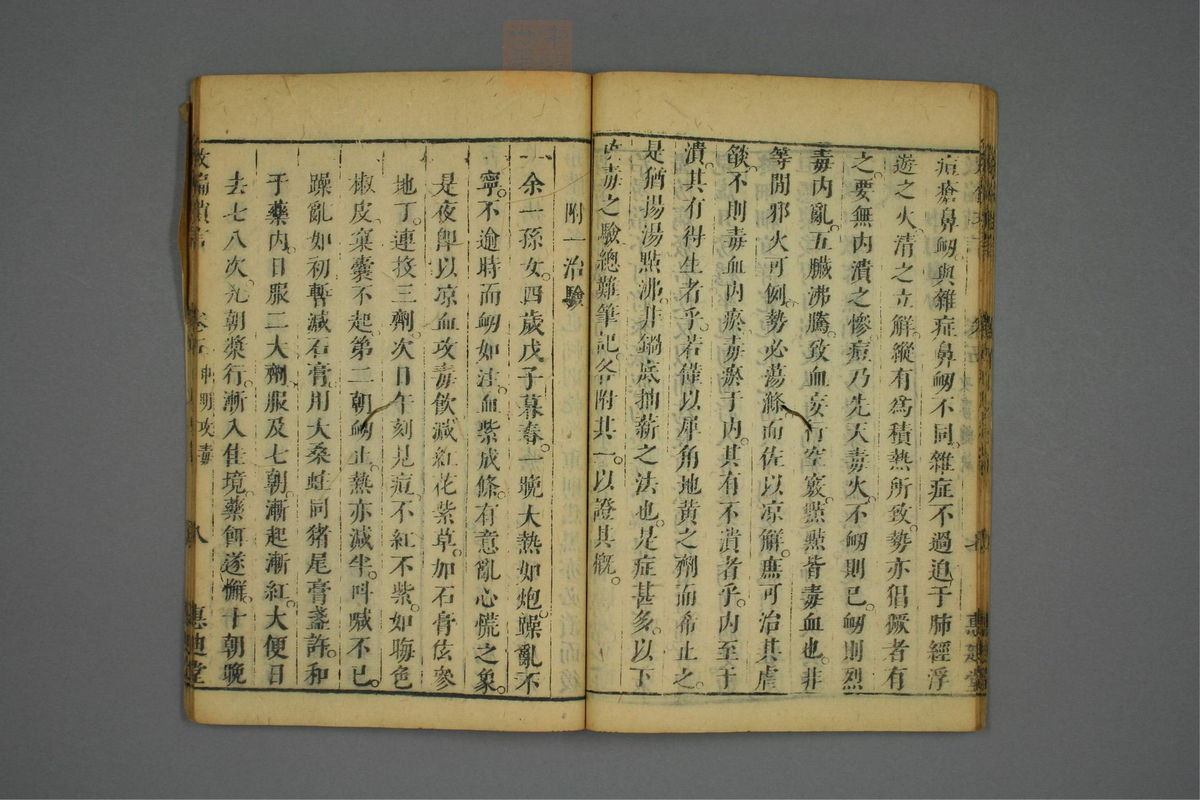 痘瘡鼻衂與雜症鼻衂不同。雜症不過追于肺經浮
遊之火。清之立解。縱有爲積熱所致。勢亦猖獗者有
之。要無内潰之慘。痘乃先天毒火。不衂則已。衂則烈
毒内亂。五臟沸騰。致血妄行空竅。點點皆毒血也。非
等閒邪火可例。勢必蕩滌。而佐以凉解。庶可治其虐
燄。不則毒血内瘀。毒瘀于内。其有不潰者乎。内至于
潰。其有得生者乎。若僅以犀角地黃之劑。而希止之。
是猶揚湯點沸。非鍋底抽薪之法也。是症甚多。以下
攻毒之驗。總難筆記。各附其一。以證其概。
附一治驗
一余一孫女。四歲戊子暮春。一晩大熱如炮。躁亂不
寧。不逾時而衂如注。血紫成條。有意亂心慌之象。
是夜卽以凉血攻毒飮減紅花紫草。加石膏伭參
地丁。連投三劑。次日午刻見痘。不紅不紫。如晦色
椒皮。稾囊不起。第二朝衂止。熱亦減半。呌喊不已。
躁亂如初。暫減石膏。用大桑蛀同猪尾膏盞許。和
于藥内。日服二大劑。服及七朝。漸起漸紅。大便日
去七八次。九朝漿行。漸入佳境。藥餌遂懈。十朝晩
救偏瑣言 卷五 申明攻毒 八 惠迪堂